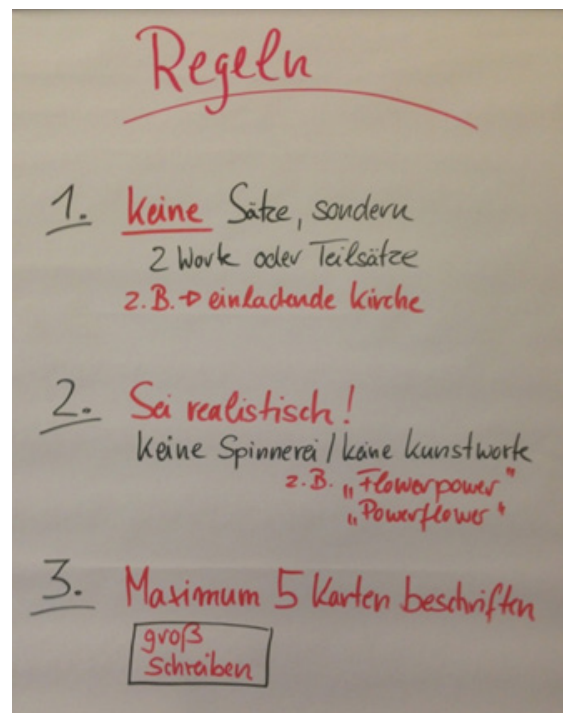 Regeln
1. Keine Sätze, sondern
2 Worte oder Teilsätze
z.B. → einladende Kirche
2. Sei realistisch!
Keine Spinnerei / keine Kunstworte
z.B. „Flowerpower“
„Powerflower“
3. Maximum 5 Karten beschriften
groß
schreiben